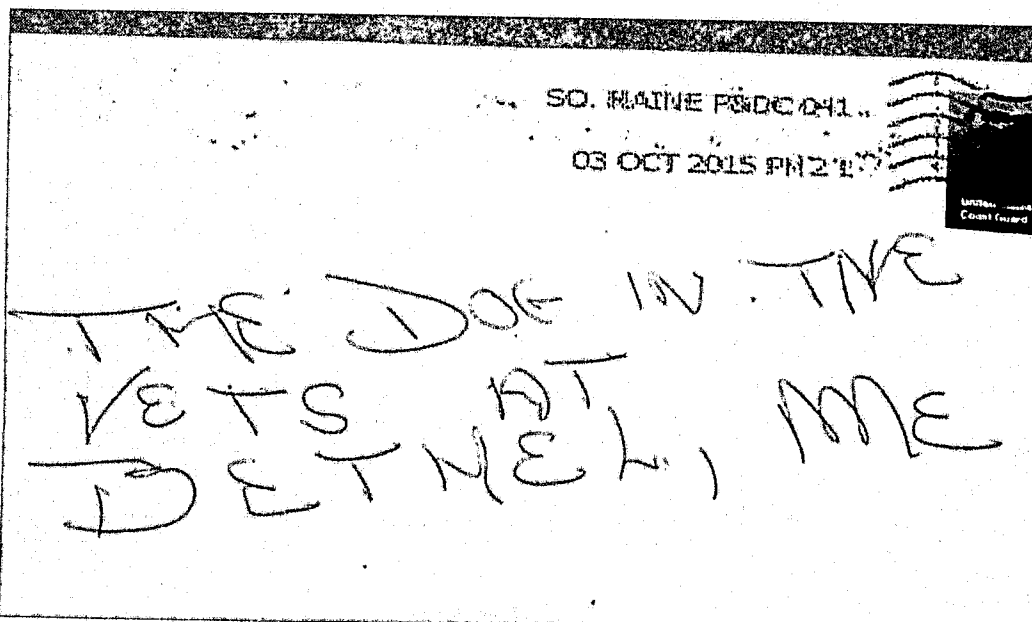 SO. MAINE P&DC 041
03 OCT 2015 PM 2 L
Coast Guard
THE DOG IN THE
VETS AT
BETHEL, ME